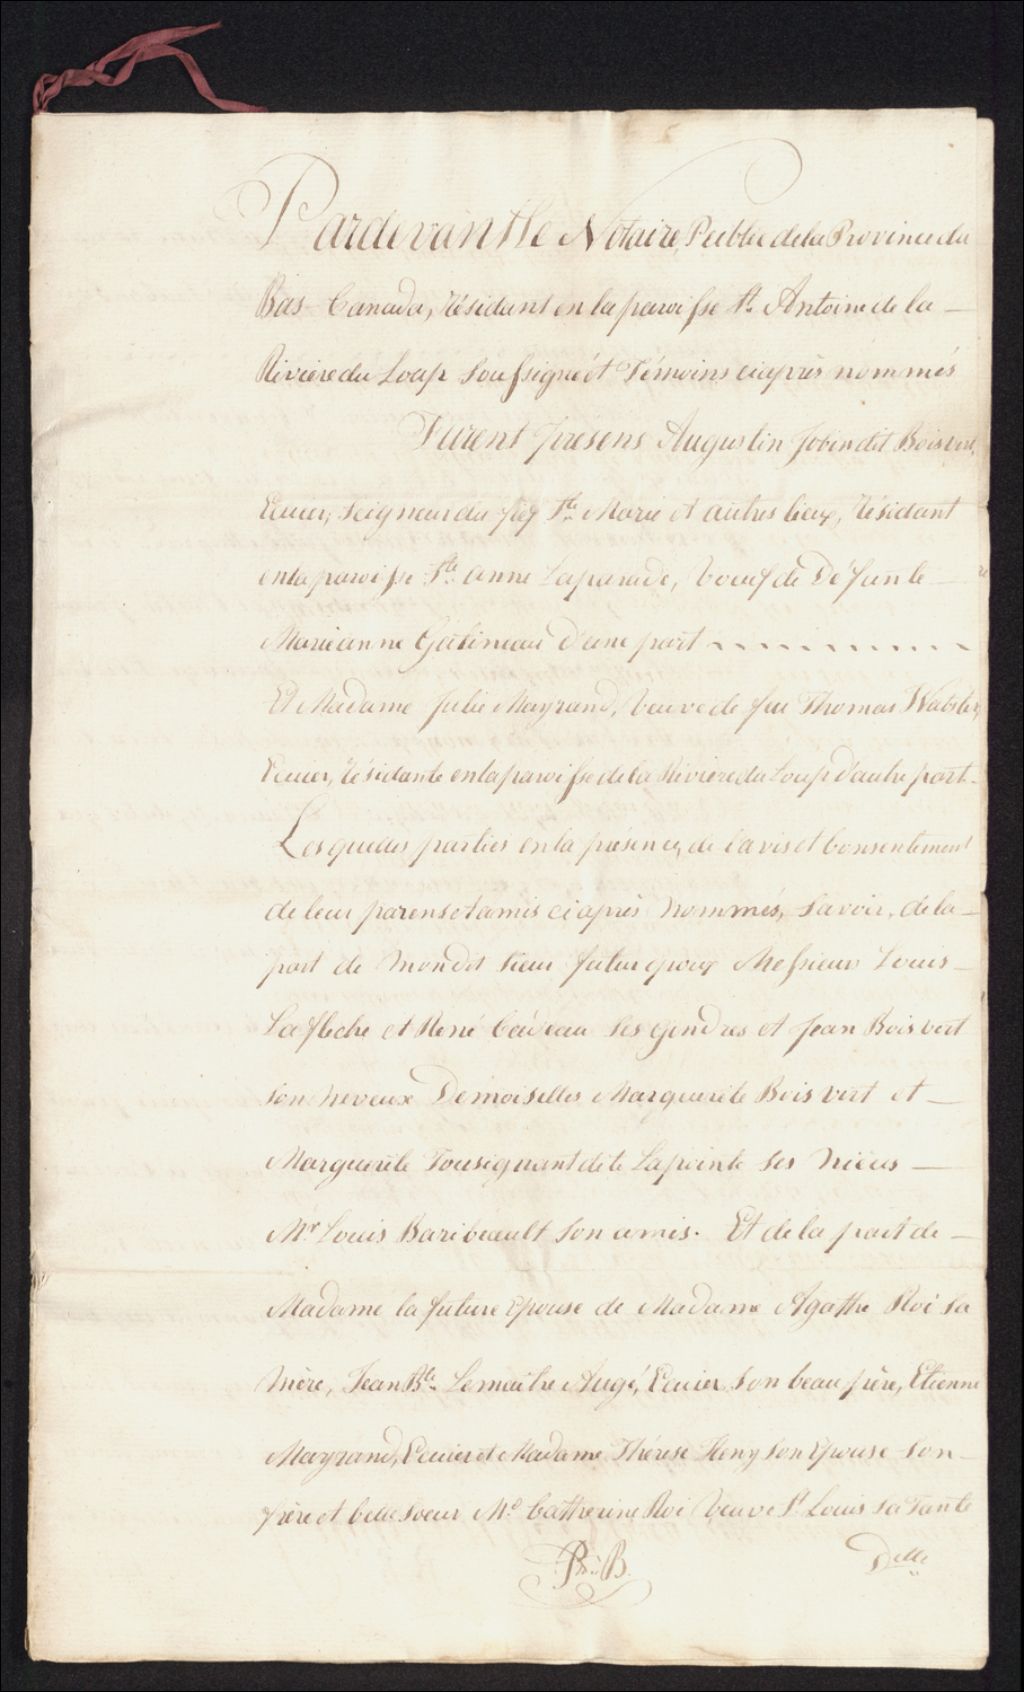 Pardevant le Notaire Public de la Province du
Bas-Canada, résidant en la paroisse St. Antoine de la —
Riviere du Loup soussigné et Témoins ci après nommés
Furent présens Augustin Jobin dit Boisvert,
Ecuier, Seigneur du fief Ste. Marie et autres lieux, résidant
en la paroisse Ste. anne Laparade, voeuf de Défunte —
Marieanne Gatineau d'une part
Et Madame Julie Mayrand, veuve de feu Thomas Wabster,
Ecuier, résidante en la paroisse de la Riviere du Loup d'autre part.
Lesquelles parties en la présence, de l'avis et Consentement
de leur parens et amis ci après nommés, savoir, de la —
part de mondit Sieur futur epoux Messieurs Louis —
Lafleche et René Cadeau ses gendres et Jean Boisvert
son neveux Demoiselles Marguerite Boisvert et —
Marguerite Tousignant dite Lapointe ses nièces —
Mr. Louis Baribeault son amis. Et de la part de —
Madame la future Epouse de Madame Agathe Roi sa
mère, Jean Bte. Lemaitre Augé, Ecuier, son beau père, Etienne
Mayrand, Ecuier et Madame Thérèse Heny son Epouse son —
frère et belle soeur Me. Catherine Roi veuve St. Louis sa Tante
Delle